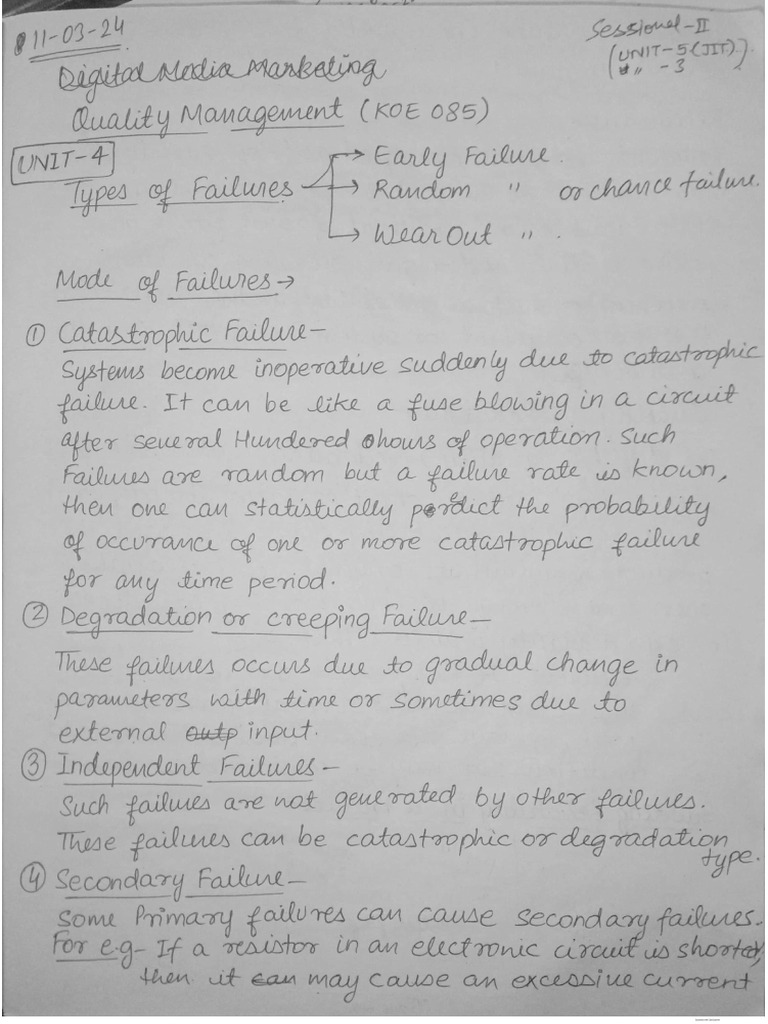 11-03-24
Sessional-II
(UNIT-5(JIT).)
" -3
Digital Media Marketing
Quality Management (KOE 085)
UNIT-4
Types of Failures → Early Failure.
→ Random " or chance failure.
→ Wear Out " .
Mode of Failures →
① Catastrophic Failure-
Systems become inoperative suddenly due to catastrophic
failure. It can be like a fuse blowing in a circuit
after several Hundered hours of operation. Such
Failures are random but a failure rate is known,
then one can statistically perdict the probability
of occurance of one or more catastrophic failure
for any time period.
② Degradation or creeping Failure-
These failures occurs due to gradual change in
parameters with time or sometimes due to
external outp input.
③ Independent Failures-
Such failures are not generated by other failures.
These failures can be catastrophic or degradation
type.
④ Secondary Failure-
Some Primary failures can cause secondary failures.
For e.g- If a resistor in an electronic circuit is shorted,
then it can may cause an excessive current